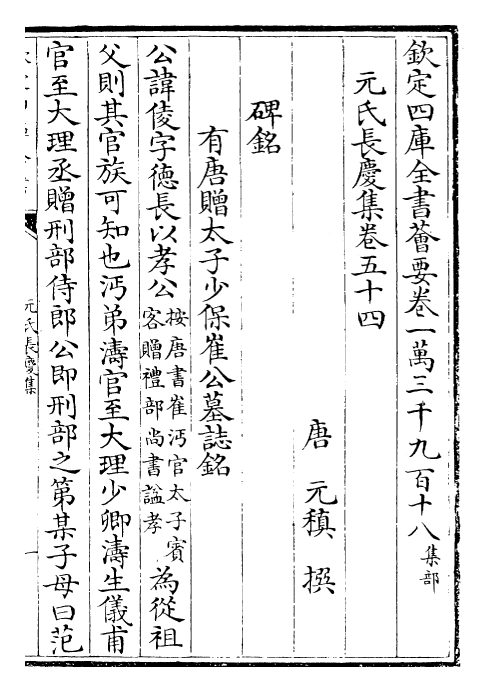 欽定四庫全書薈要卷一萬三千九百十八集部
元氏長慶集卷五十四
唐 元稹 撰
碑銘
有唐贈太子少保崔公墓誌銘
公諱倰字德長以孝公按唐書崔沔官太子賓客贈禮部尚書謚孝為從祖
父則其官族可知也沔弟濤官至大理少卿濤生儀甫
官至大理丞贈刑部侍郎公即刑部之第某子母曰范
元氏長慶集
一